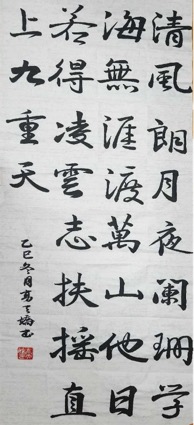 清風朗月夜阑珊学
海無涯渡萬山他日
若得凌雲志扶摇直
上九重天
乙巳冬月